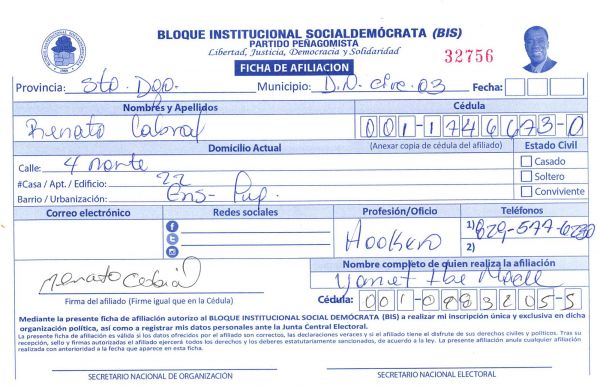 BLOQUE INSTITUCIONAL SOCIALDEMÓCRATA (BIS)
PARTIDO PEÑAGOMISTA
Libertad, Justicia, Democracia y Solidaridad
32756
FICHA DE AFILIACION
Provincia: Sto. Dgo. Municipio: D.N. circ. 03 Fecha:
Nombres y Apellidos Cédula
Renato Cabral 001-1746673-0
Domicilio Actual (Anexar copia de cédula del afiliado) Estado Civil
Calle: 4 norte Casado
#Casa / Apt. / Edificio: 22 Soltero
Barrio / Urbanización: Ens- Conviviente
Correo electrónico Redes sociales Profesión/Oficio Teléfonos
1) 829-577-6230
2)
Nombre completo de quien realiza la afiliación
Renato Cabral Yanet
Firma del afiliado (Firme igual que en la Cédula) Cédula: 001-0883205-5
Mediante la presente ficha de afiliación autorizo al BLOQUE INSTITUCIONAL SOCIAL DEMÓCRATA (BIS) a realizar mi inscripción única y exclusiva en dicha
organización política, así como a registrar mis datos personales ante la Junta Central Electoral.
La presente ficha de afiliación es válida si los datos ofrecidos por el afiliado son correctos, las declaraciones veraces y si el afiliado tiene el disfrute de sus derechos civiles y políticos. Tras su
recepción, sello y firmas autorizadas el afiliado ejercerá todos los derechos y los deberes estatutariamente sancionados, de acuerdo a la ley. La presente afiliación anula cualquier afiliación
realizada con anterioridad a la fecha que aparece en esta ficha.
SECRETARIO NACIONAL DE ORGANIZACIÓN SECRETARIO NACIONAL ELECTORAL